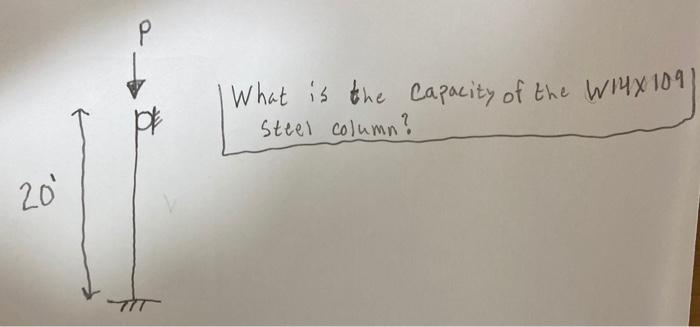 P
What is the capacity of the W14x109
steel column?
20'